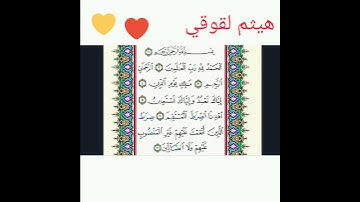 هيثم لقوقي
بسم الله الرحمن الرحيم
الحمد لله رب العالمين الرحمن
الرحيم ملك يوم الدين
إياك نعبد وإياك نستعين
اهدنا الصراط المستقيم صراط
الذين أنعمت عليهم غير المغضوب
عليهم ولا الضالين